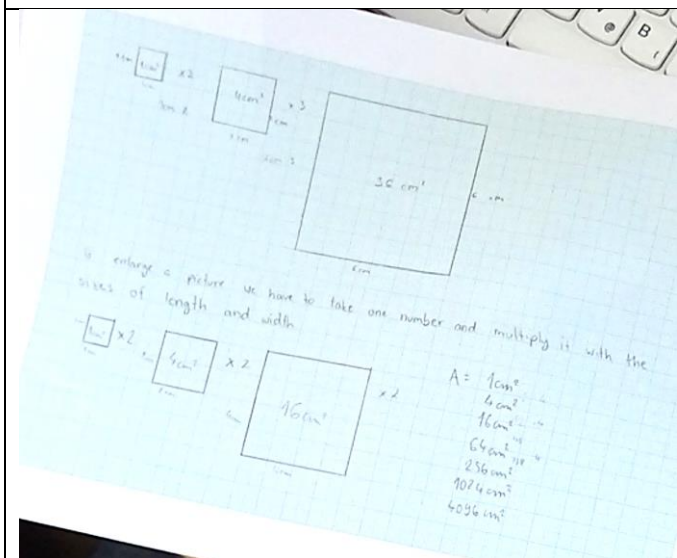 1cm² ×2 4cm² ×3
2cm
36 cm²
6cm
enlarge a picture we have to take one number and multiply it with the
sizes of length and width
1cm² ×2 4cm² ×2 16cm² ×2
A = 1cm²
4cm²
16cm²
64cm²
256cm²
1024cm²
4096cm²
B